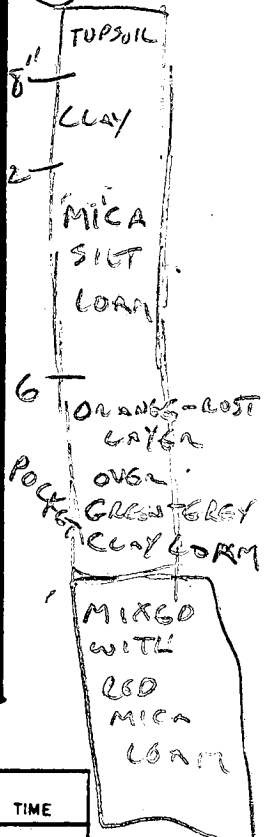 TOPSOIL
8"
CLAY
2
MICA
SILT
LOAM
6
ORANGE-RUST
LAYER
OVER
POCKET
GREEN-GREY
CLAY LOAM
MIXED
WITH
RED
MICA
LOAM
TIME